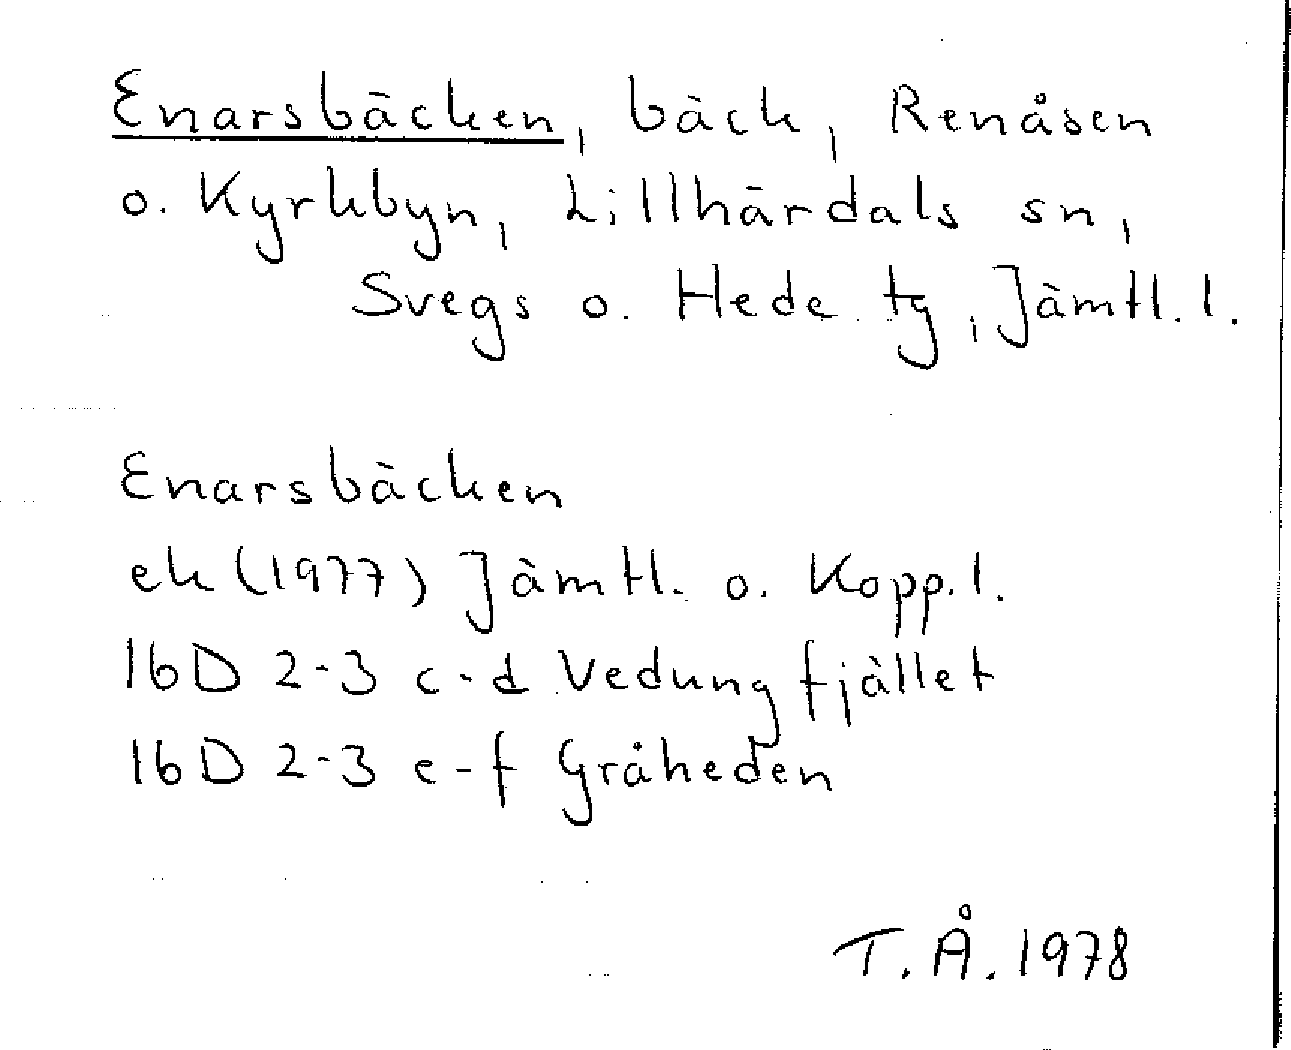 Enarsbäcken, bäck, Renåsen
o. Kyrkbyn, Lillhärdals sn,
Svegs o. Hede tg, Jämtl. l.
Enarsbäcken
ek (1977) Jämtl. o. Kopp. l.
16D 2-3 c-d Vedungfjället
16D 2-3 e-f Gråheden
T. Å. 1978